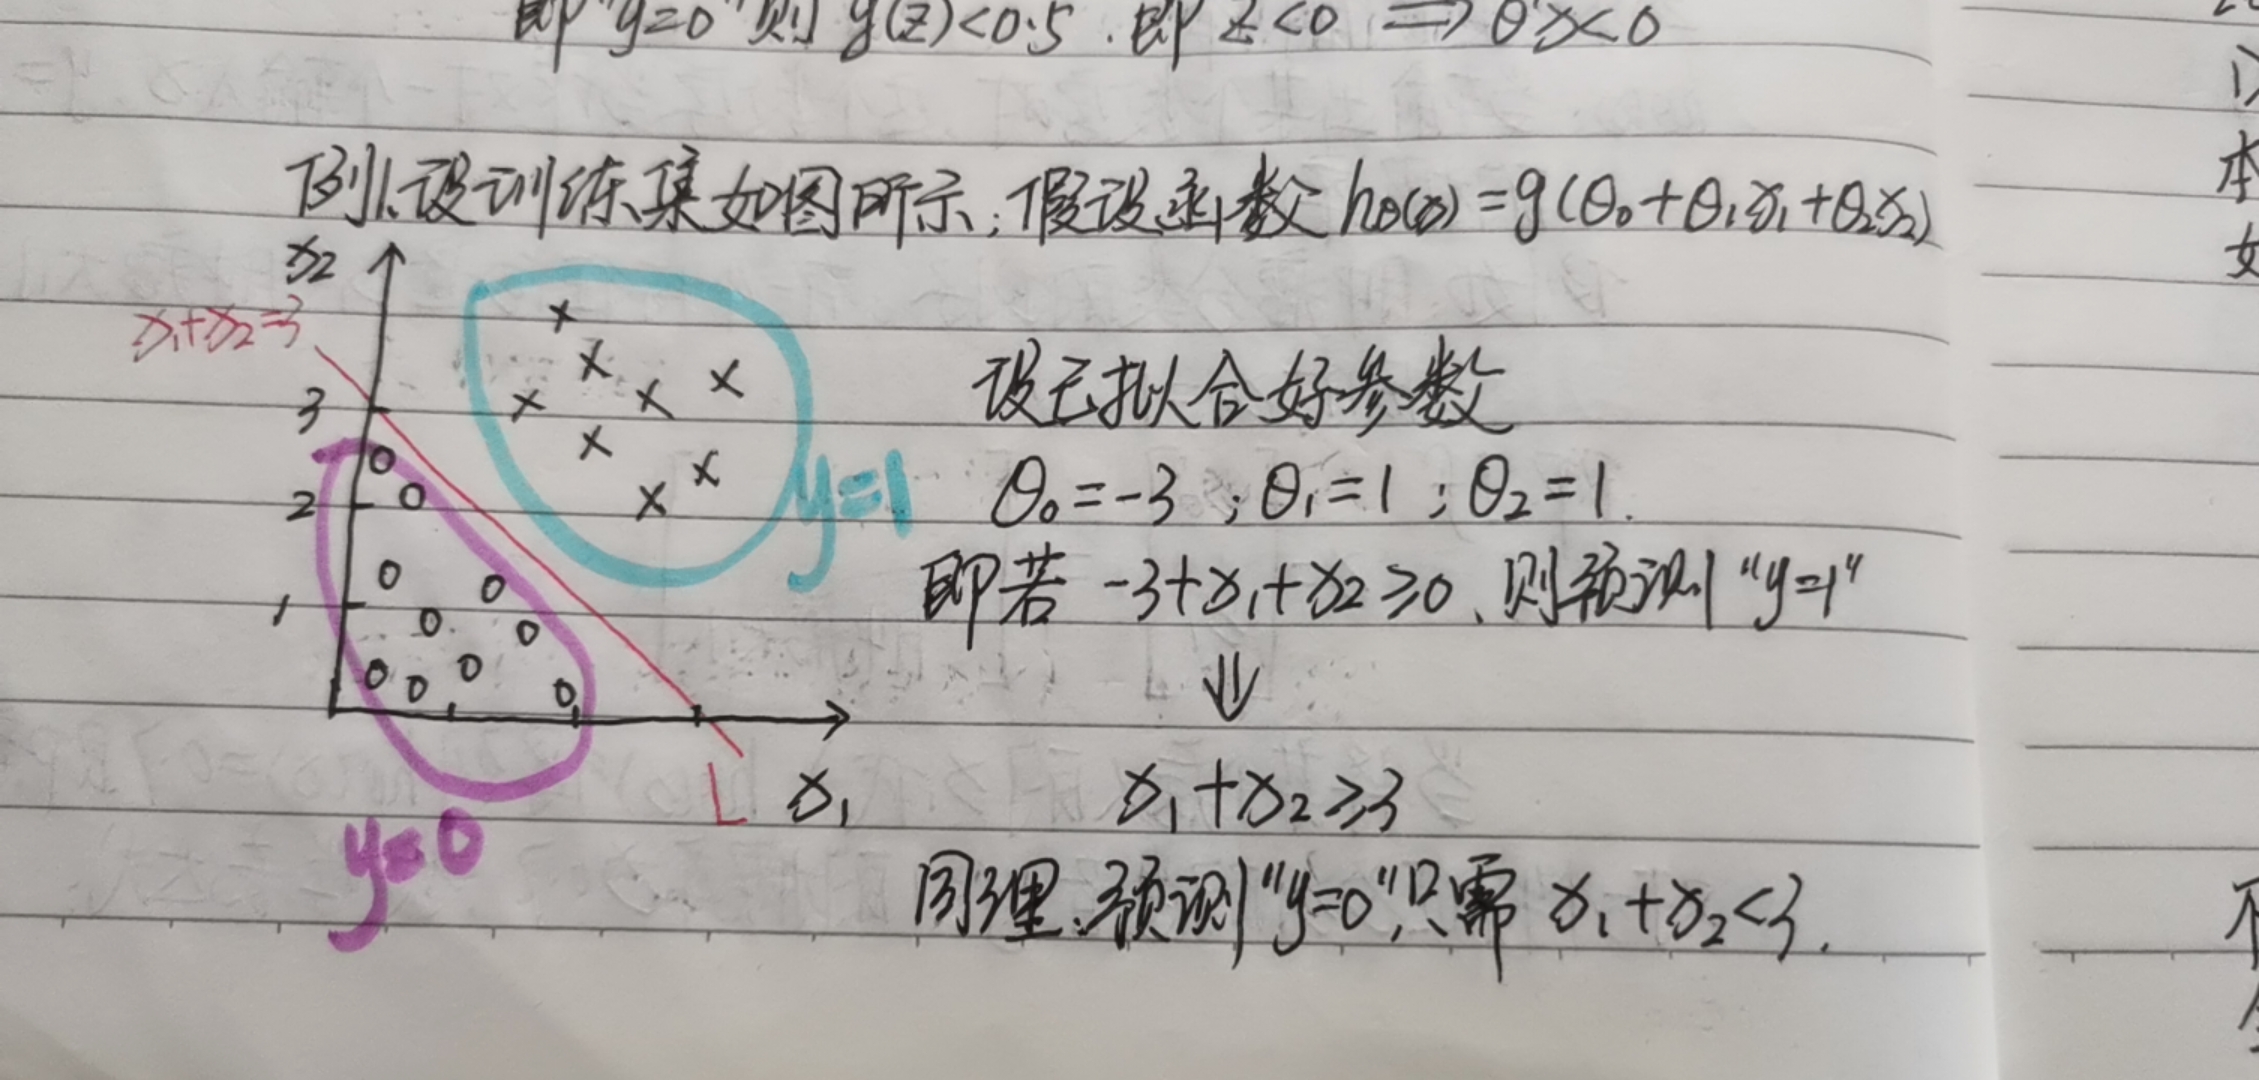 即"y=0"则 g(z)<0.5.即 z<0 ⟹ θᵀx<0
例1.设训练集如图所示,假设函数 hθ(x)=g(θ₀+θ₁x₁+θ₂x₂)
x₂
x₁+x₂=3
3
2
1
y=1
y=0
L
x₁
设已拟合好参数
θ₀=-3;θ₁=1;θ₂=1.
即若 -3+x₁+x₂≥0、则预测"y=1"
⇓
x₁+x₂≥3
同理、预测"y=0",只需 x₁+x₂<3.
本
如